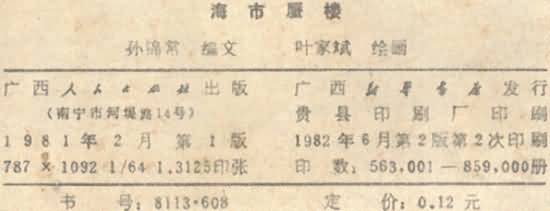 海市蜃楼
孙锦常 编文 叶家斌 绘画
广西人民出版社出版
(南宁市河堤路14号)
1981年2月第1版
787×1092 1/64 1.3125印张
广西新华书店发行
贵县印刷厂印刷
1982年6月第2版第2次印刷
印数:563,001—859,000册
书号:8113·608 定价:0.12元